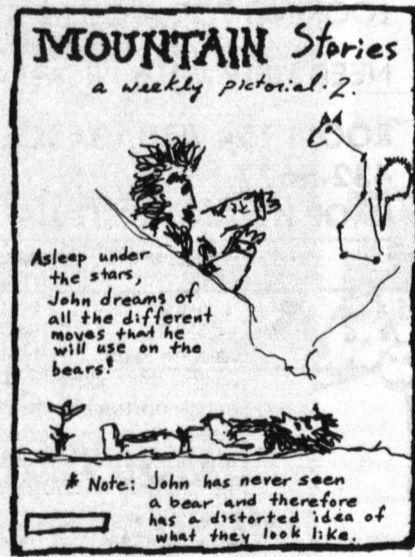 MOUNTAIN Stories
a weekly pictorial. 2.
Asleep under
the stars,
John dreams of
all the different
moves that he
will use on the
bears!*
* Note: John has never seen
a bear and therefore
has a distorted idea of
what they look like.